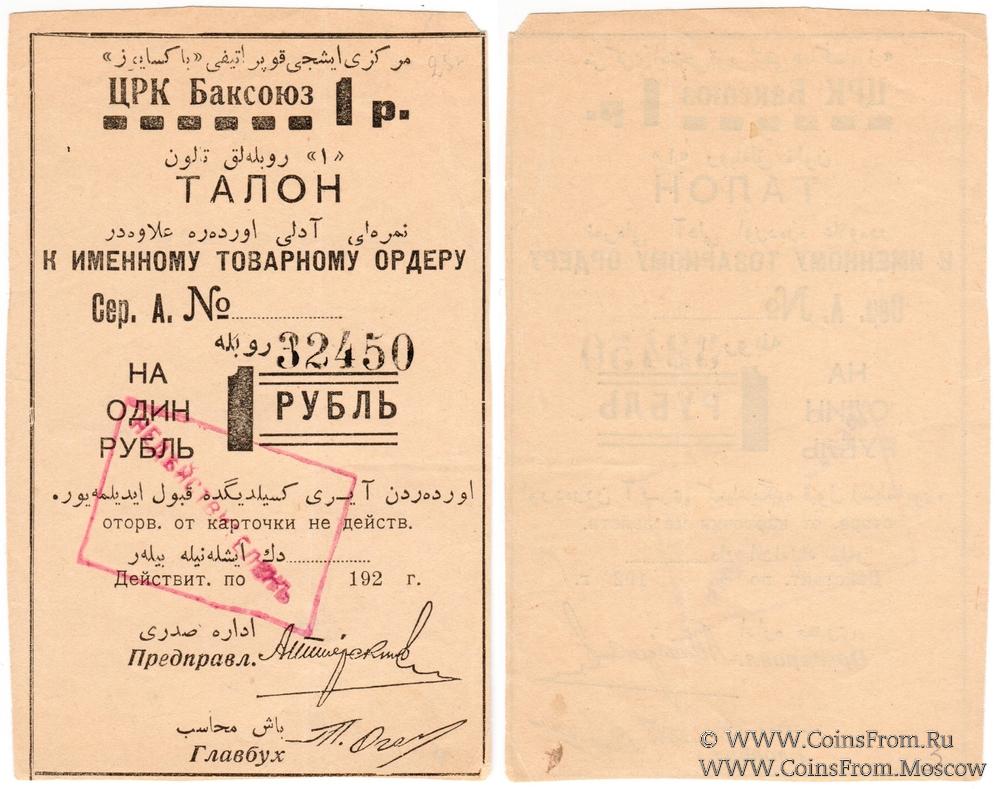 مركزی ایشجی قوپراتیفی «باكسایوز»
ЦРК Баксоюз 1 р.
«١» روبلەلق تالون
ТАЛОН
نمرەلی آدلی اوردەرە علاوەدر
К ИМЕННОМУ ТОВАРНОМУ ОРДЕРУ
Сер. А. №
روبلە 32450
НА ОДИН РУБЛЬ
1 РУБЛЬ
اوردەردن آیری كسیلدیگدە قبول ایدیلمەیور.
оторв. от карточки не действ.
دك ایشلەنیلە بیلەر
Действит. по 192 г.
НЕДЕЙСТВИТЕЛЕНЪ
ادارە صدری
Предправл.
باش محاسب
Главбух
© WWW.CoinsFrom.Ru
WWW.CoinsFrom.Moscow